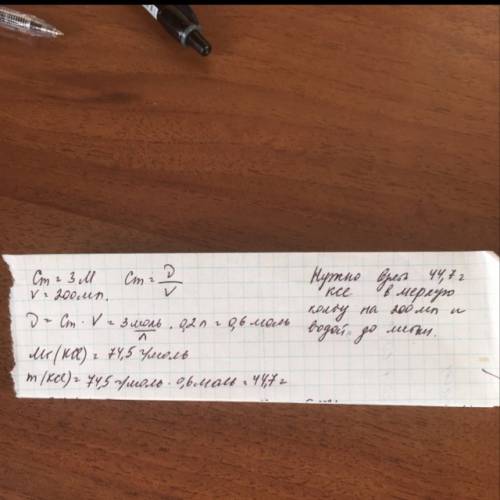 Cm = 3 M Cm = D/V
V = 200 мл.
D = Cm · V = 3 моль/л · 0,2 л = 0,6 моль
Mr (KCl) = 74,5 г/моль
m (KCl) = 74,5 г/моль · 0,6 моль = 44,7 г
Нужно 44,7 г
KCl в мерную
колбу на 200 мл и
водой до метки.